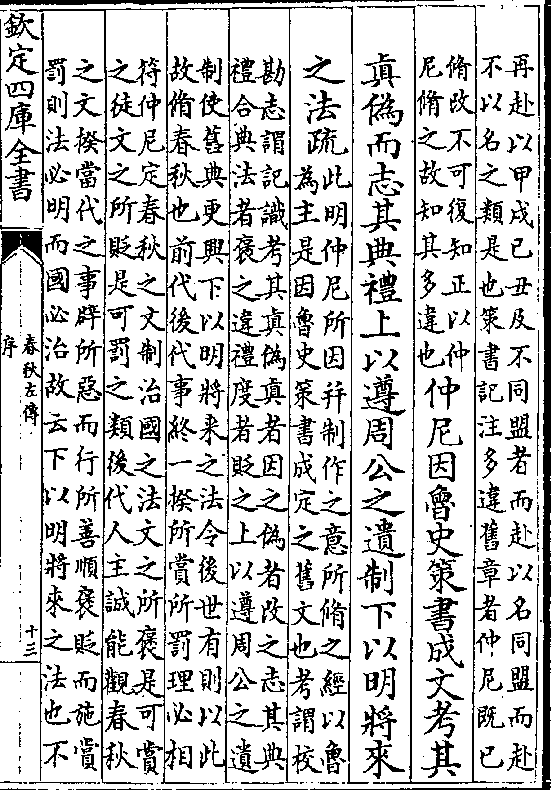 再赴以甲戌己丑及不同盟者而赴以名同盟而赴
不以名之類是也策書記注多違舊章者仲尼既已
脩改不可復知正以仲
尼脩之故知其多違也
仲尼因魯史策書成文考其
真偽而志其典禮上以遵周公之遺制下以明將來
之法疏
此明仲尼所因并制作之意所脩之經以魯
為主是因魯史策書成定之舊文也考謂校
勘志謂記識考其真偽真者因之偽者改之志其典
禮合典法者褒之違禮度者貶之上以遵周公之遺
制使舊典更興下以明將来之法令後世有則以此
故脩春秋也前代後代事終一揆所賞所罰理必相
符仲尼定春秋之文制治國之法文之所褒是可賞
之徒文之所貶是可罰之類後代人主誠能觀春秋
之文揆當代之事辟所惡而行所善順褒貶而施賞
罰則法必明而國必治故云下以明將來之法也不
欽定四庫全書
春秋左傳
序
十三